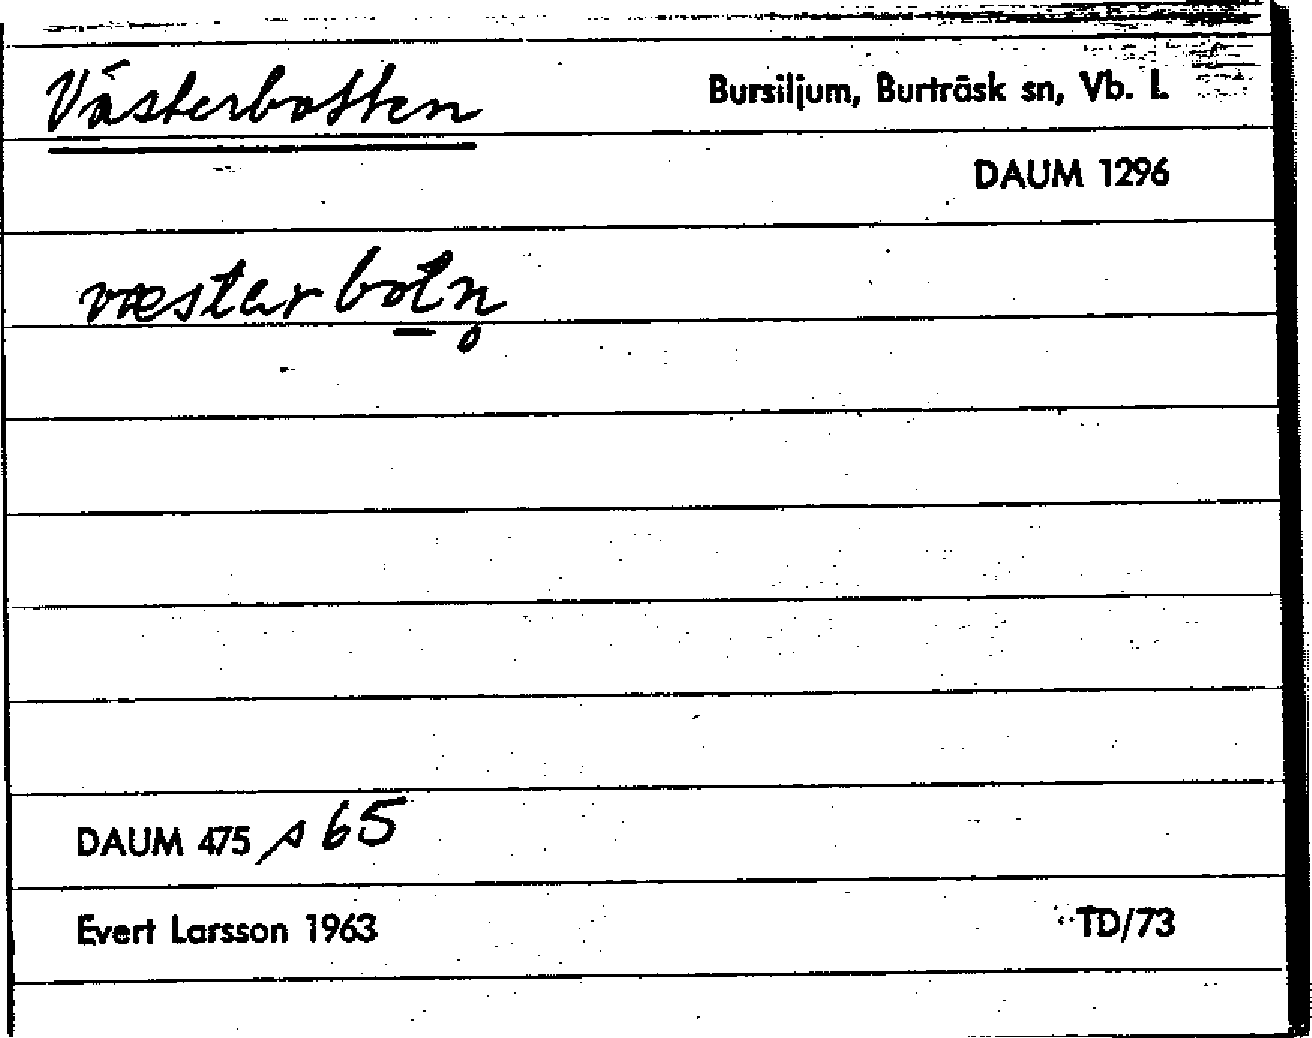 Västerbotten
Bursiljum, Burträsk sn, Vb. L
DAUM 1296
væstərbo̲tn̥
DAUM 475 s 65
Evert Larsson 1963
TD/73